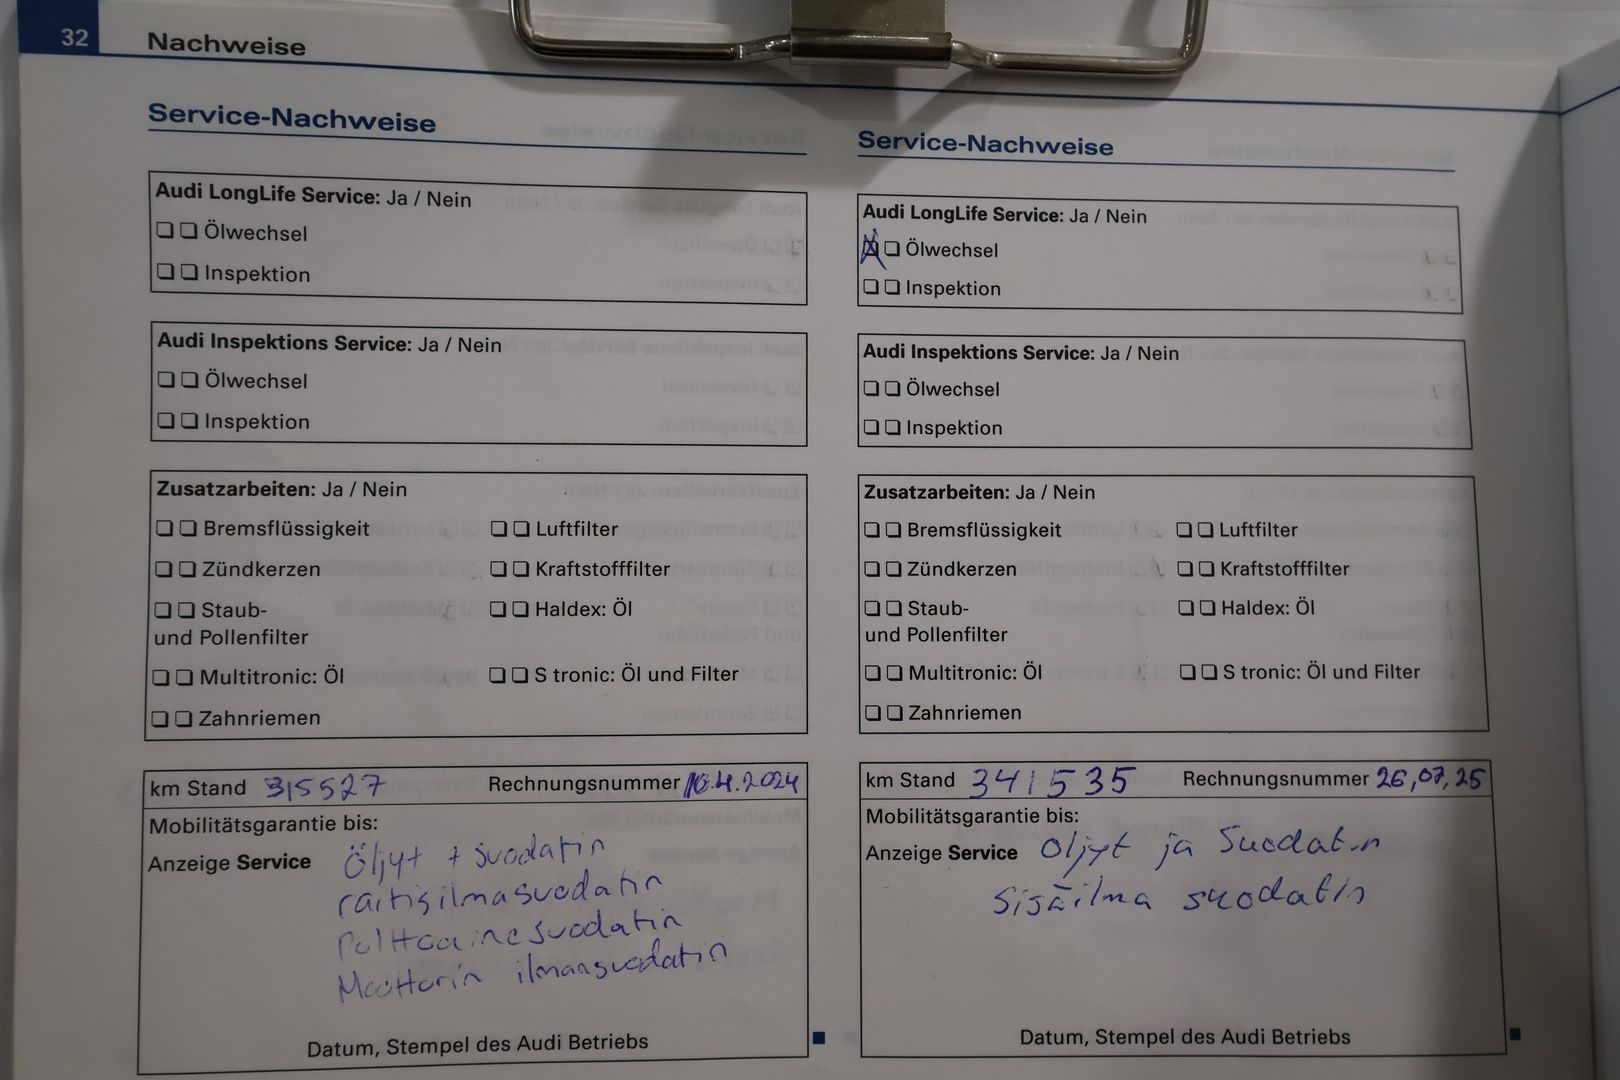 32 Nachweise
Service-Nachweise
Audi LongLife Service: Ja / Nein
Ölwechsel
Inspektion
Audi Inspektions Service: Ja / Nein
Ölwechsel
Inspektion
Zusatzarbeiten: Ja / Nein
Bremsflüssigkeit Luftfilter
Zündkerzen Kraftstofffilter
Staub- Haldex: Öl
und Pollenfilter
Multitronic: Öl S tronic: Öl und Filter
Zahnriemen
km Stand 315527 Rechnungsnummer 10.4.2024
Mobilitätsgarantie bis:
Anzeige Service Öljyt + suodatin
raitisilmasuodatin
Polttoainesuodatin
Moottorin ilmansuodatin
Datum, Stempel des Audi Betriebs
Service-Nachweise
Audi LongLife Service: Ja / Nein
Ölwechsel
Inspektion
Audi Inspektions Service: Ja / Nein
Ölwechsel
Inspektion
Zusatzarbeiten: Ja / Nein
Bremsflüssigkeit Luftfilter
Zündkerzen Kraftstofffilter
Staub- Haldex: Öl
und Pollenfilter
Multitronic: Öl S tronic: Öl und Filter
Zahnriemen
km Stand 341535 Rechnungsnummer 26,07,25
Mobilitätsgarantie bis:
Anzeige Service Öljyt ja Suodatin
Sisäilma suodatin
Datum, Stempel des Audi Betriebs